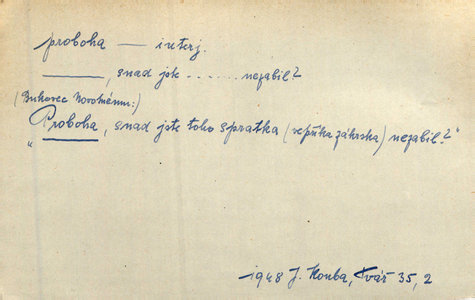 proboha — interj.
———, snad jste ....... nezabil?
(Bukovec Novotnému:)
„Proboha, snad jste toho spratka (vepříka záhrska) nezabil?“
1948 J. Kouba, Tvář 35, 2